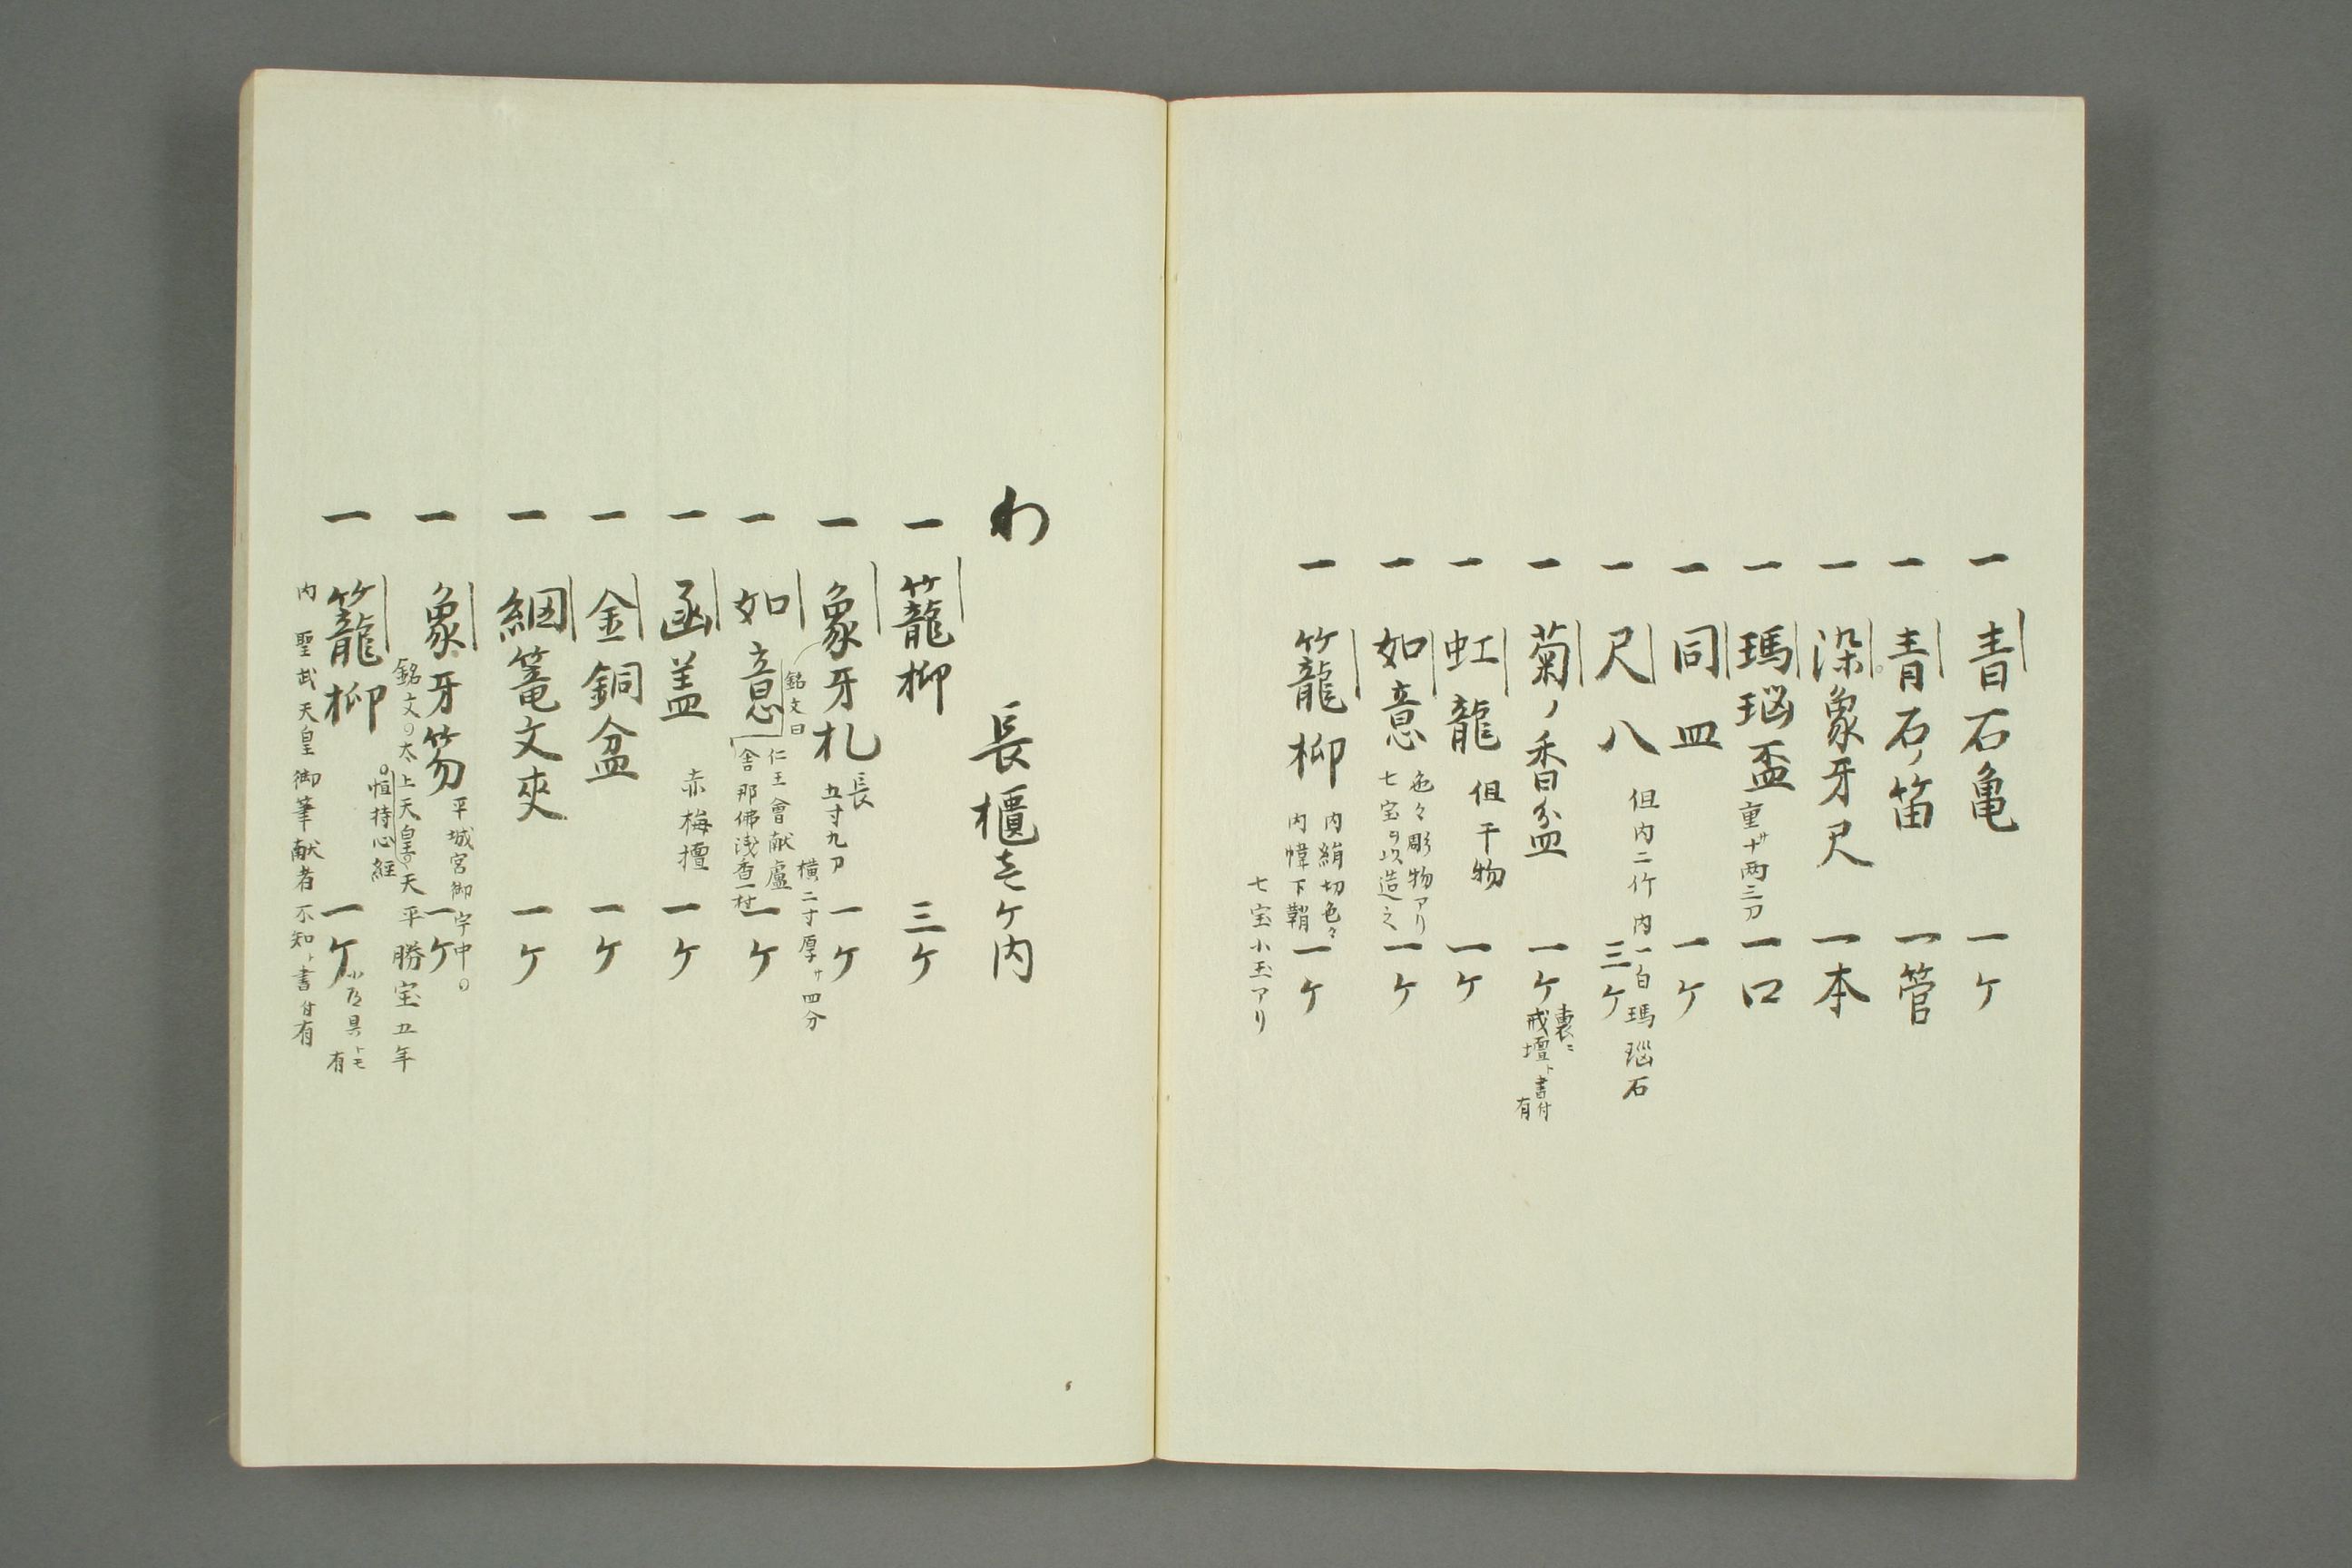 一 青石亀 一ケ
一 青石ノ笛 一管
一 染象牙尺 一本
一 瑪瑙盃 重サ十両三刀 一口
一 同皿 一ケ
一 尺八 但内二竹内一白瑪瑙石 三ケ
一 菊ノ香盆 一ケ 裏ニ戒壇ト書付有
一 虹龍 但干物 一ケ
一 如意 色々彫物アリ七宝ヲ以造之 一ケ
一 籠柳 内絹切色々内幃下鞘 一ケ
七宝小玉アリ
わ 長櫃壱ケ内
一 籠柳 三ケ
一 象牙札 長五寸九刀 一ケ
横二寸厚サ四分
銘文曰仁王會献盧舎那佛浅香一村
一 如意 一ケ
一 函盖 赤梅檀 一ケ
一 金銅盆 一ケ
一 綑篭文夾 一ケ
一 象牙笏 平城宮御字中 一ケ
銘文太上天皇天平勝宝五年
恒持心経
一 籠柳 一ケ 小道具トモ有
内 聖武天皇御筆献者不知ト書付有